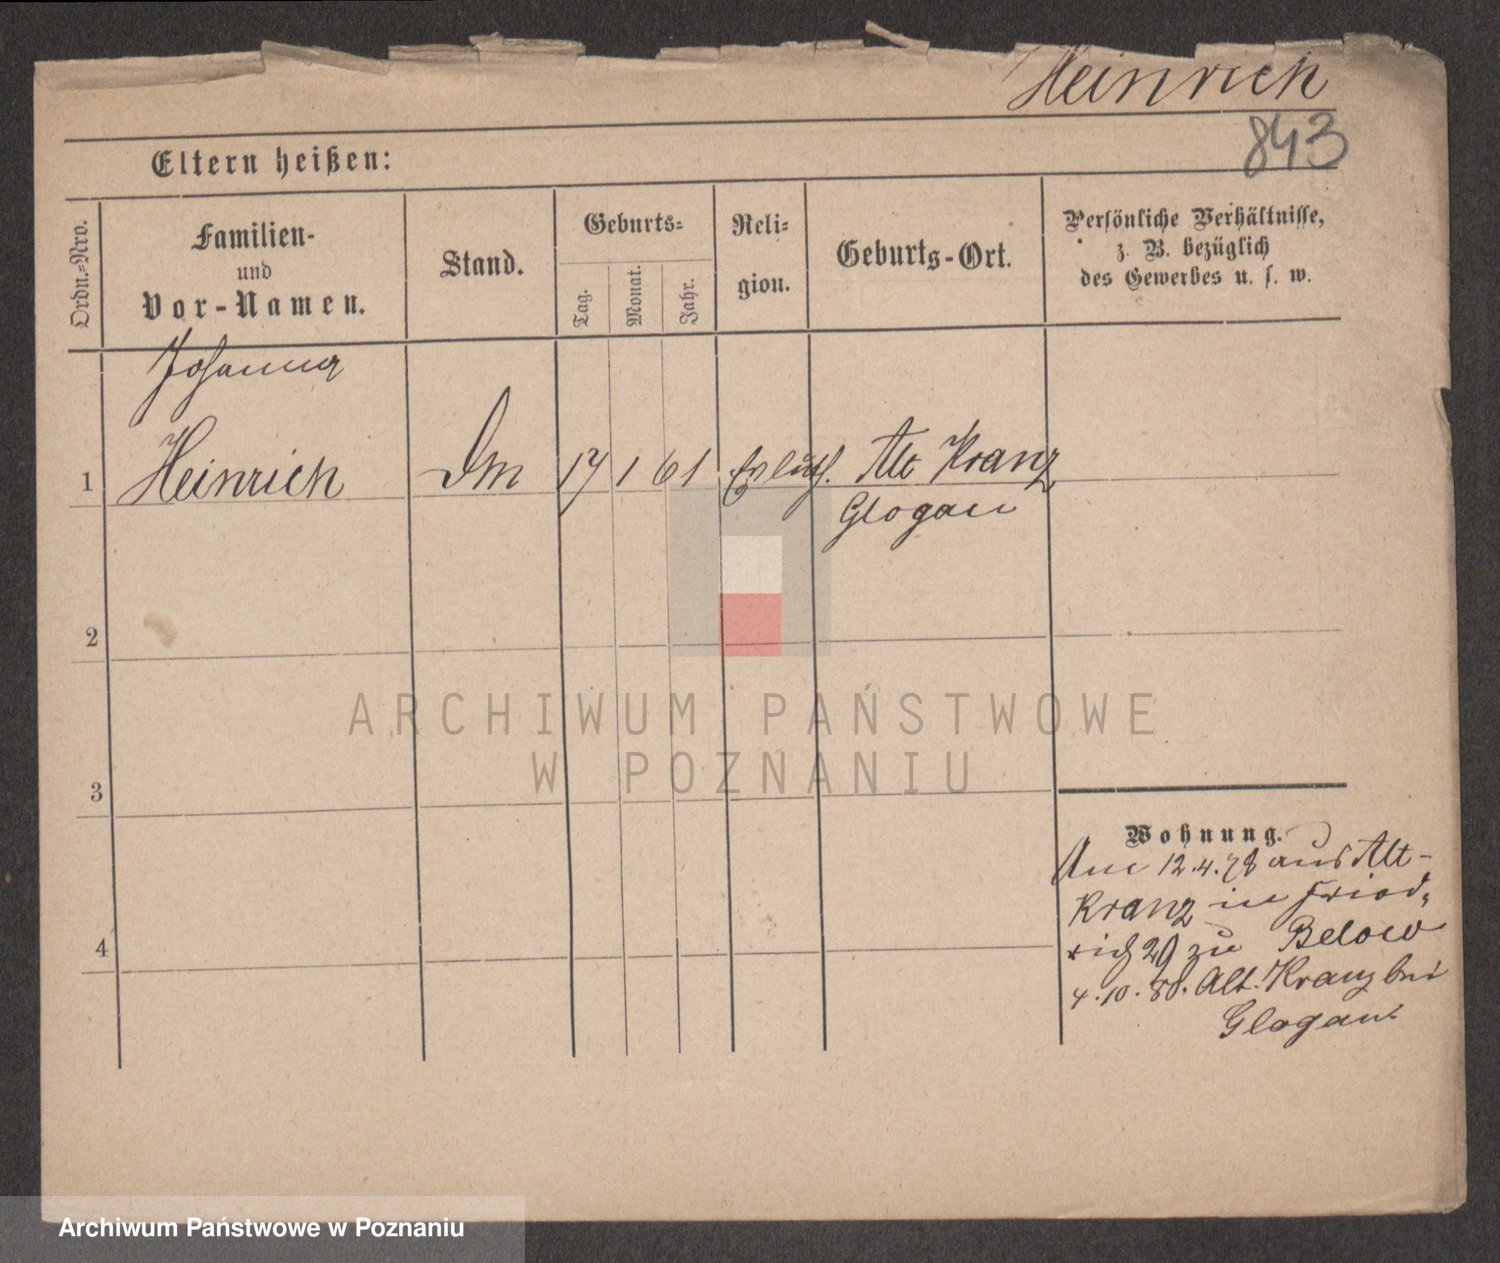 Heinrich
843
Eltern heißen:
Ordn.=Nro.
Familien-
und
Vor-Namen.
Stand.
Geburts=
Tag.
Monat.
Jahr.
Reli=
gion.
Geburts-Ort.
Persönliche Verhältnisse,
z. B. bezüglich
des Gewerbes u. s. w.
Johanna
1 Heinrich Dm 17 1 61 Alt Kranz
Glogau
2
3
4
Wohnung.
Am 12.4.78 aus Alt-
Kranz in Fried,
rich 29 zu Below
4.10.80. Alt. Kranz bei
Glogau.
ARCHIWUM PAŃSTWOWE
W POZNANIU
Archiwum Państwowe w Poznaniu